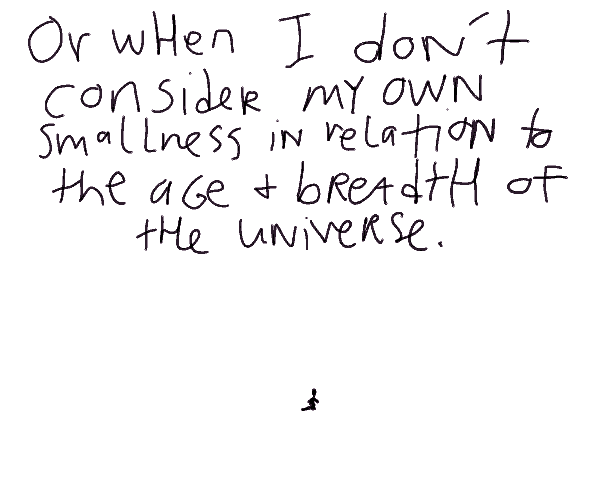 Or wHen I don't
consideR MY OWN
smallness iN relatiON to
the aGe + bREAdtH of
tHe UNiveRSe.